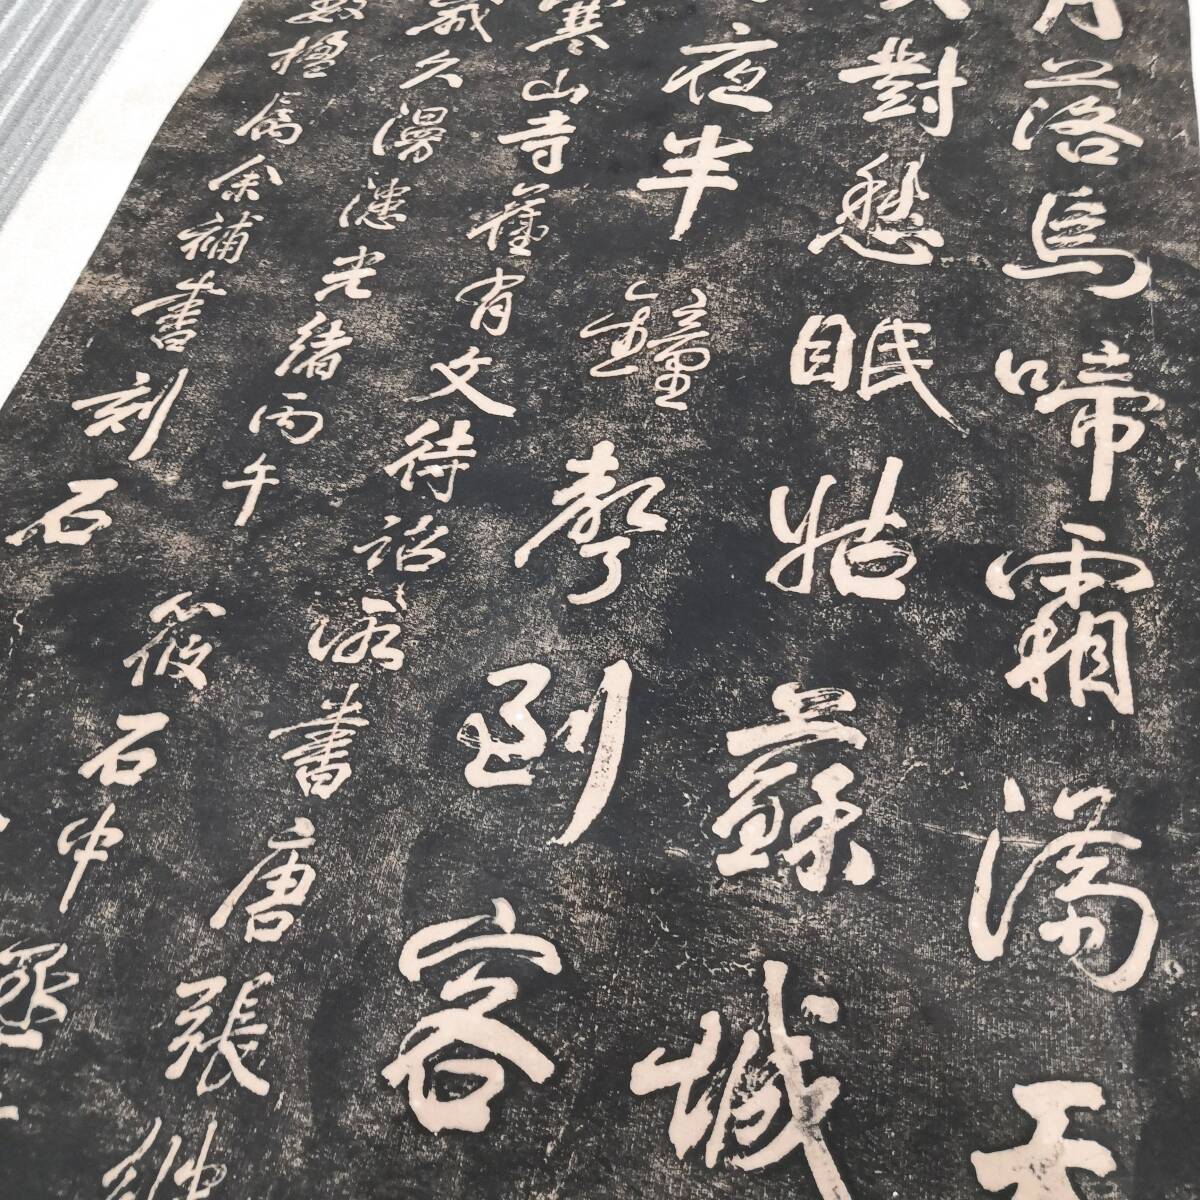 月落烏啼霜滿天
對愁眠姑蘇城
夜半鐘聲到客
寒山寺舊有文待詔所書唐張繼
歲久漫漶光緒丙午筱石中丞
數楹屬余補書刻石